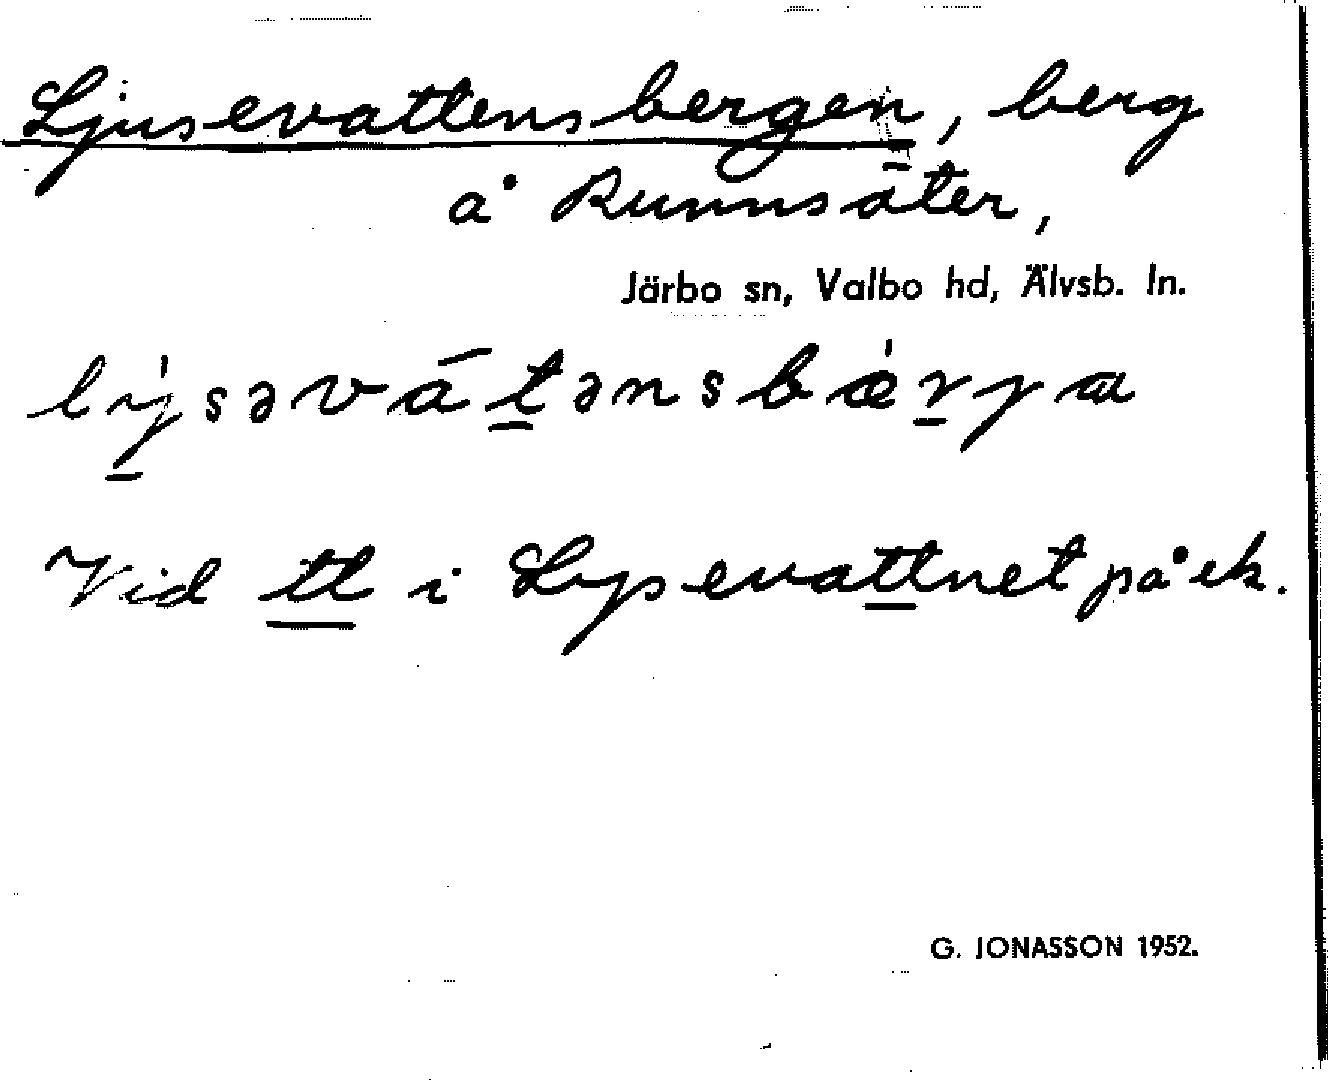 Ljusevattensbergen, berg
å Runnsäter,
Järbo sn, Valbo hd, Älvsb. ln.
lýsəvàtənsbæ̀rja
Vid tt i Lysevattnet på ek.
G. JONASSON 1952.